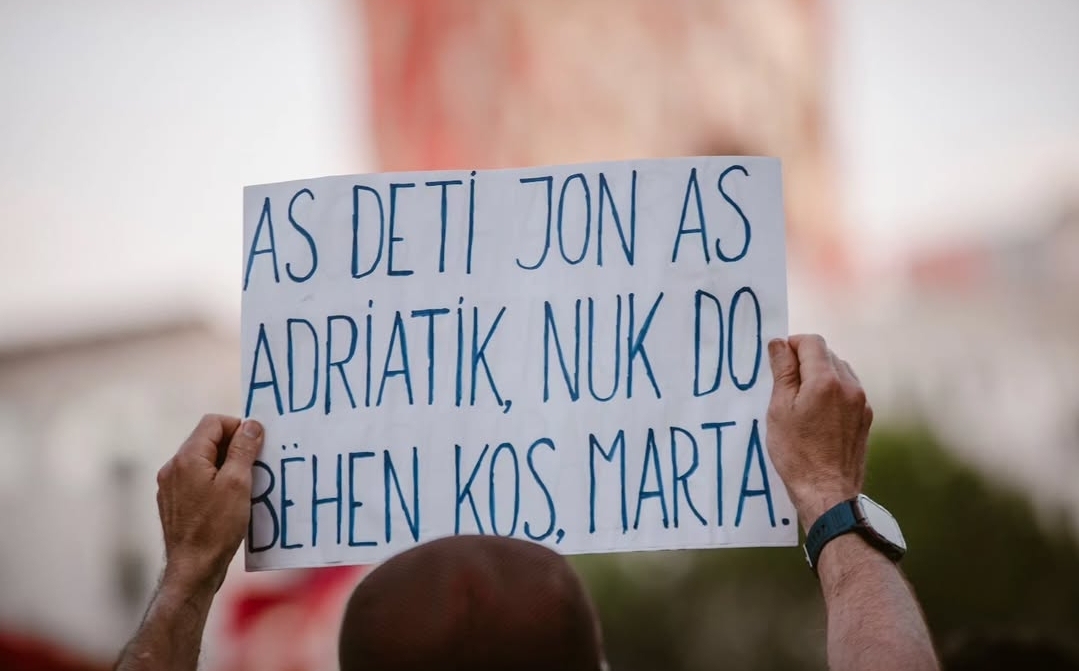 AS DETİ JON AS
ADRİATİK, NUK DO
BËHEN KOS, MARTA.